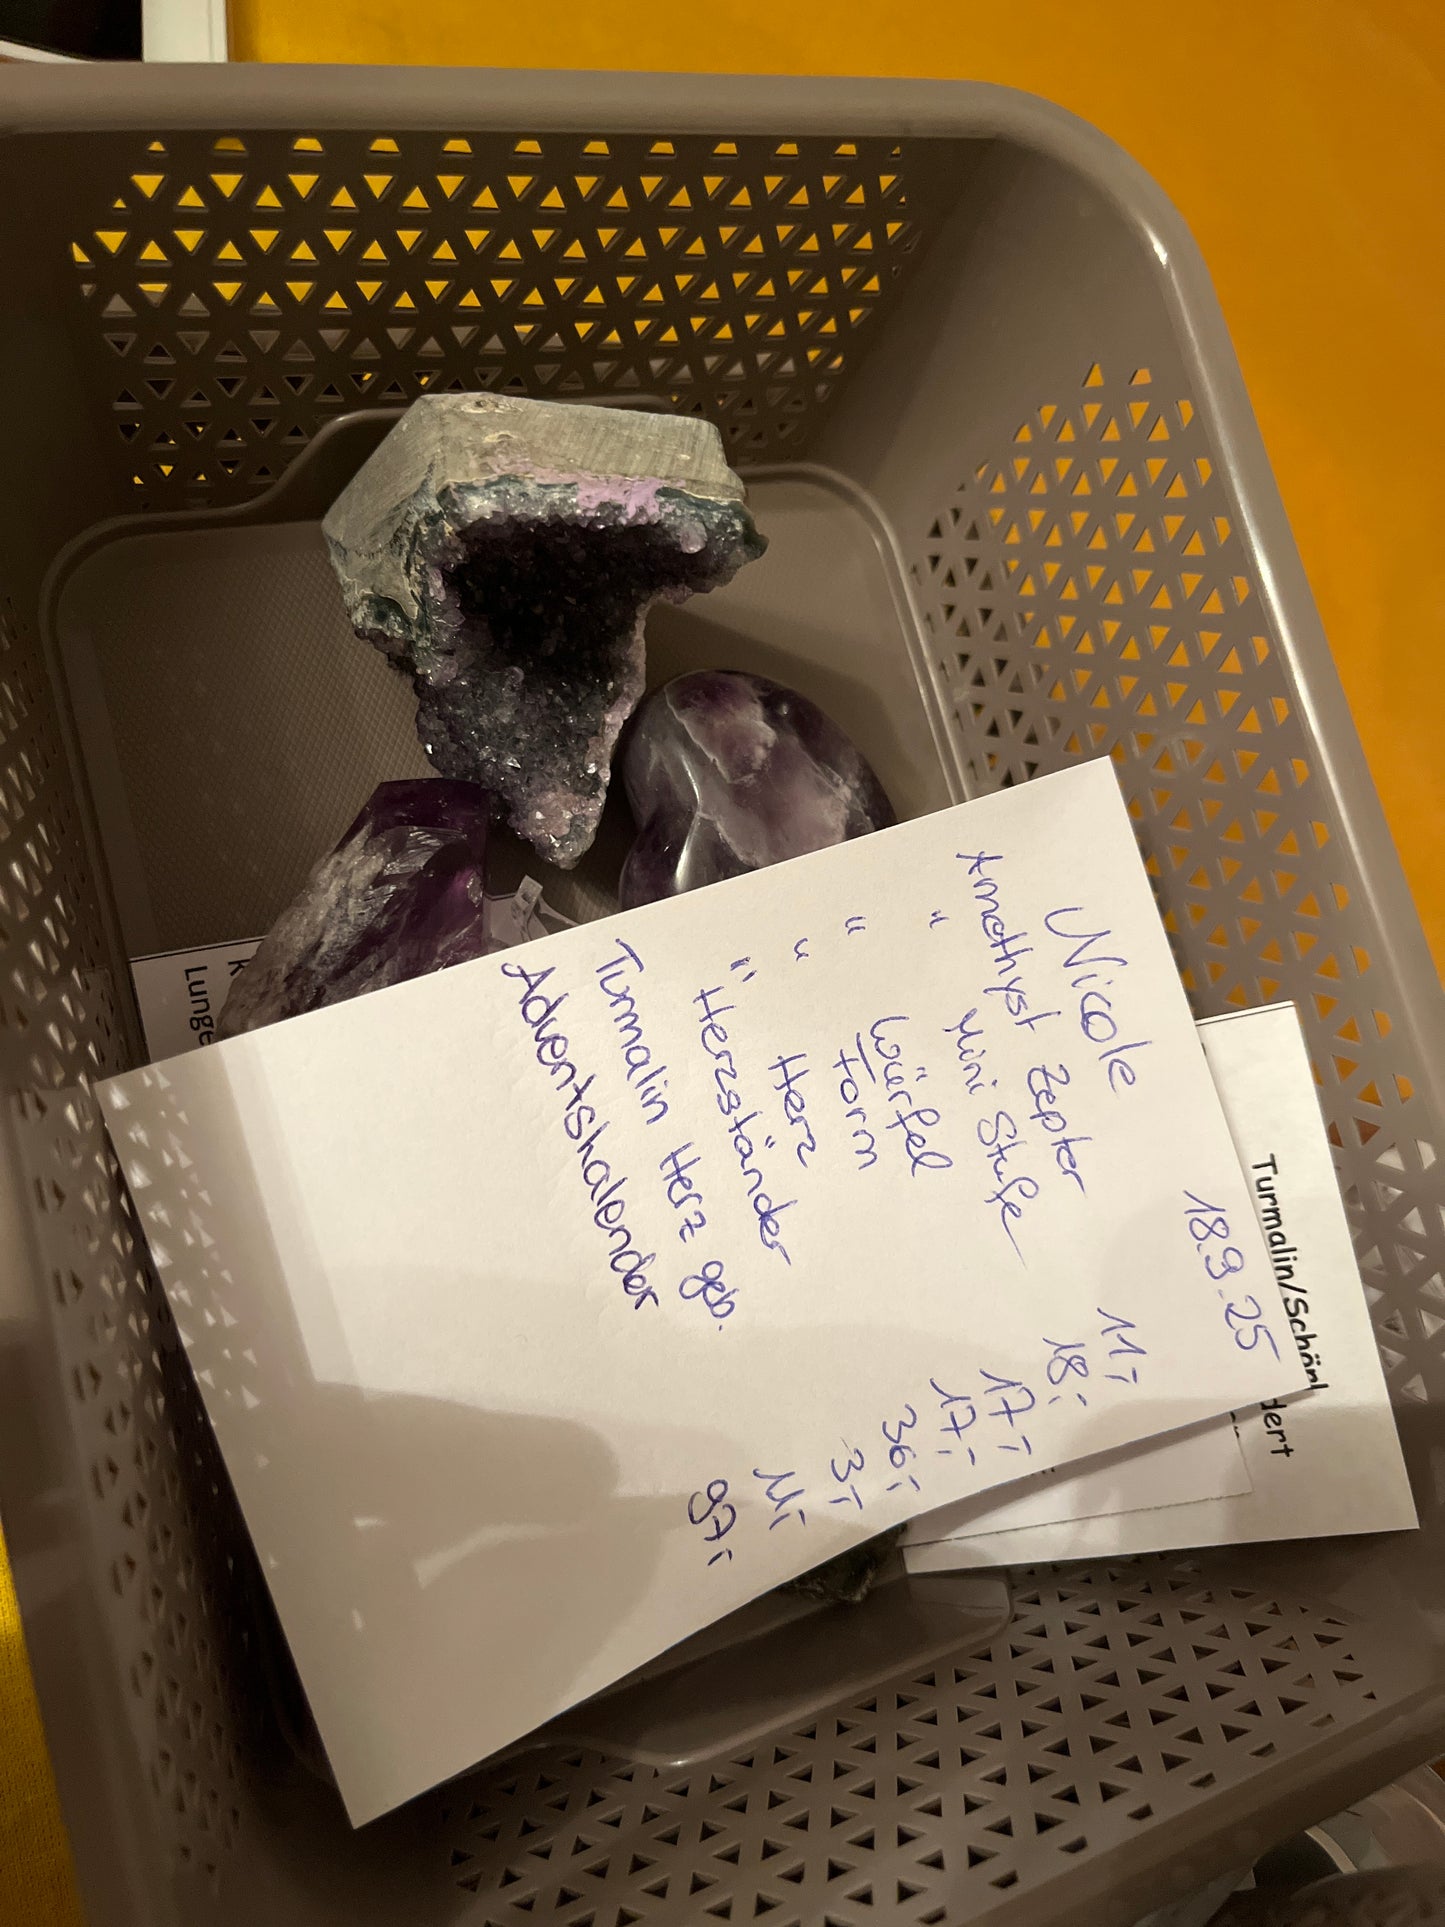 18.9.25
Nicole
Amethyst Zepter 11,-
" Mini Stufe 18,-
" Würfel 17,-
" Form 17,-
" Herz 36,-
Herzständer 3,-
Turmalin Herz geb. 11,-
Adventskalender 97,-
Turmalin/Schörl
dert
K
Lunge